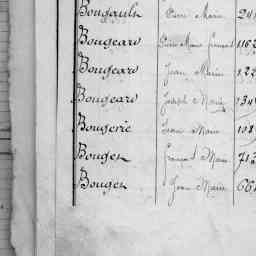 Bougault Pierre Marie 241
Bougeard Pierre Marie François 1162
Bougeard Jean Marie 122
Bougeard Joseph Marie 134
Bougerie Jean Marie 108
Bouget François Marie 713
Bouget Jean Marie 661